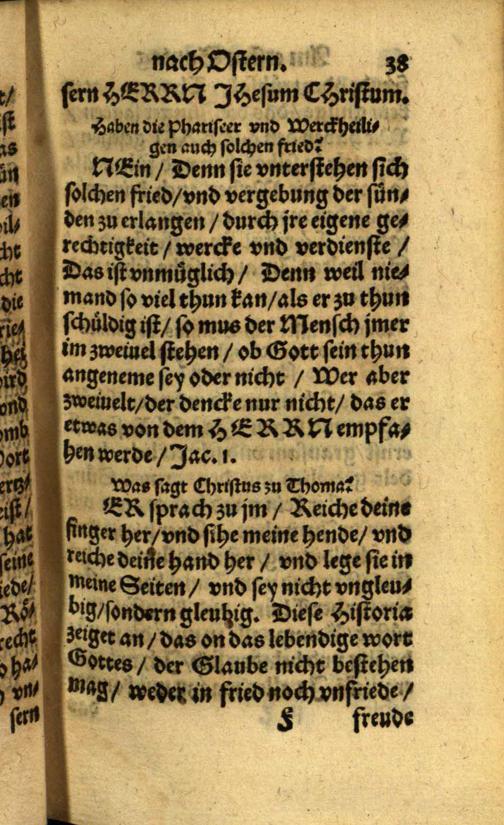 nach Ostern. 38
sern HERRN JHesum CHristum.
Haben die Phariseer vnd Werckheili⸗
gen auch solchen fried?
NEin / Denn sie vnterstehen sich
solchen fried/vnd vergebung der sün⸗
den zu erlangen / durch jre eigene ge⸗
rechtigkeit / wercke vnd verdienste /
Das ist vnmüglich / Denn weil nie⸗
mand so viel thun kan/als er zu thun
schüldig ist/ so mus der Mensch jmer
im zweiuel stehen / ob Gott sein thun
angeneme sey oder nicht / Wer aber
zweiuelt/der dencke nur nicht/ das er
etwas von dem HERRN empfa⸗
hen werde / Jac. 1.
Was sagt Christus zu Thoma?
ER sprach zu jm / Reiche deine
finger her/vnd sihe meine hende/ vnd
reiche deine hand her / vnd lege sie in
meine Seiten / vnd sey nicht vngleu⸗
big/sondern gleubig. Diese Historia
zeiget an / das on das lebendige wort
Gottes / der Glaube nicht bestehen
mag/ weder in fried noch vnfriede /
F freude